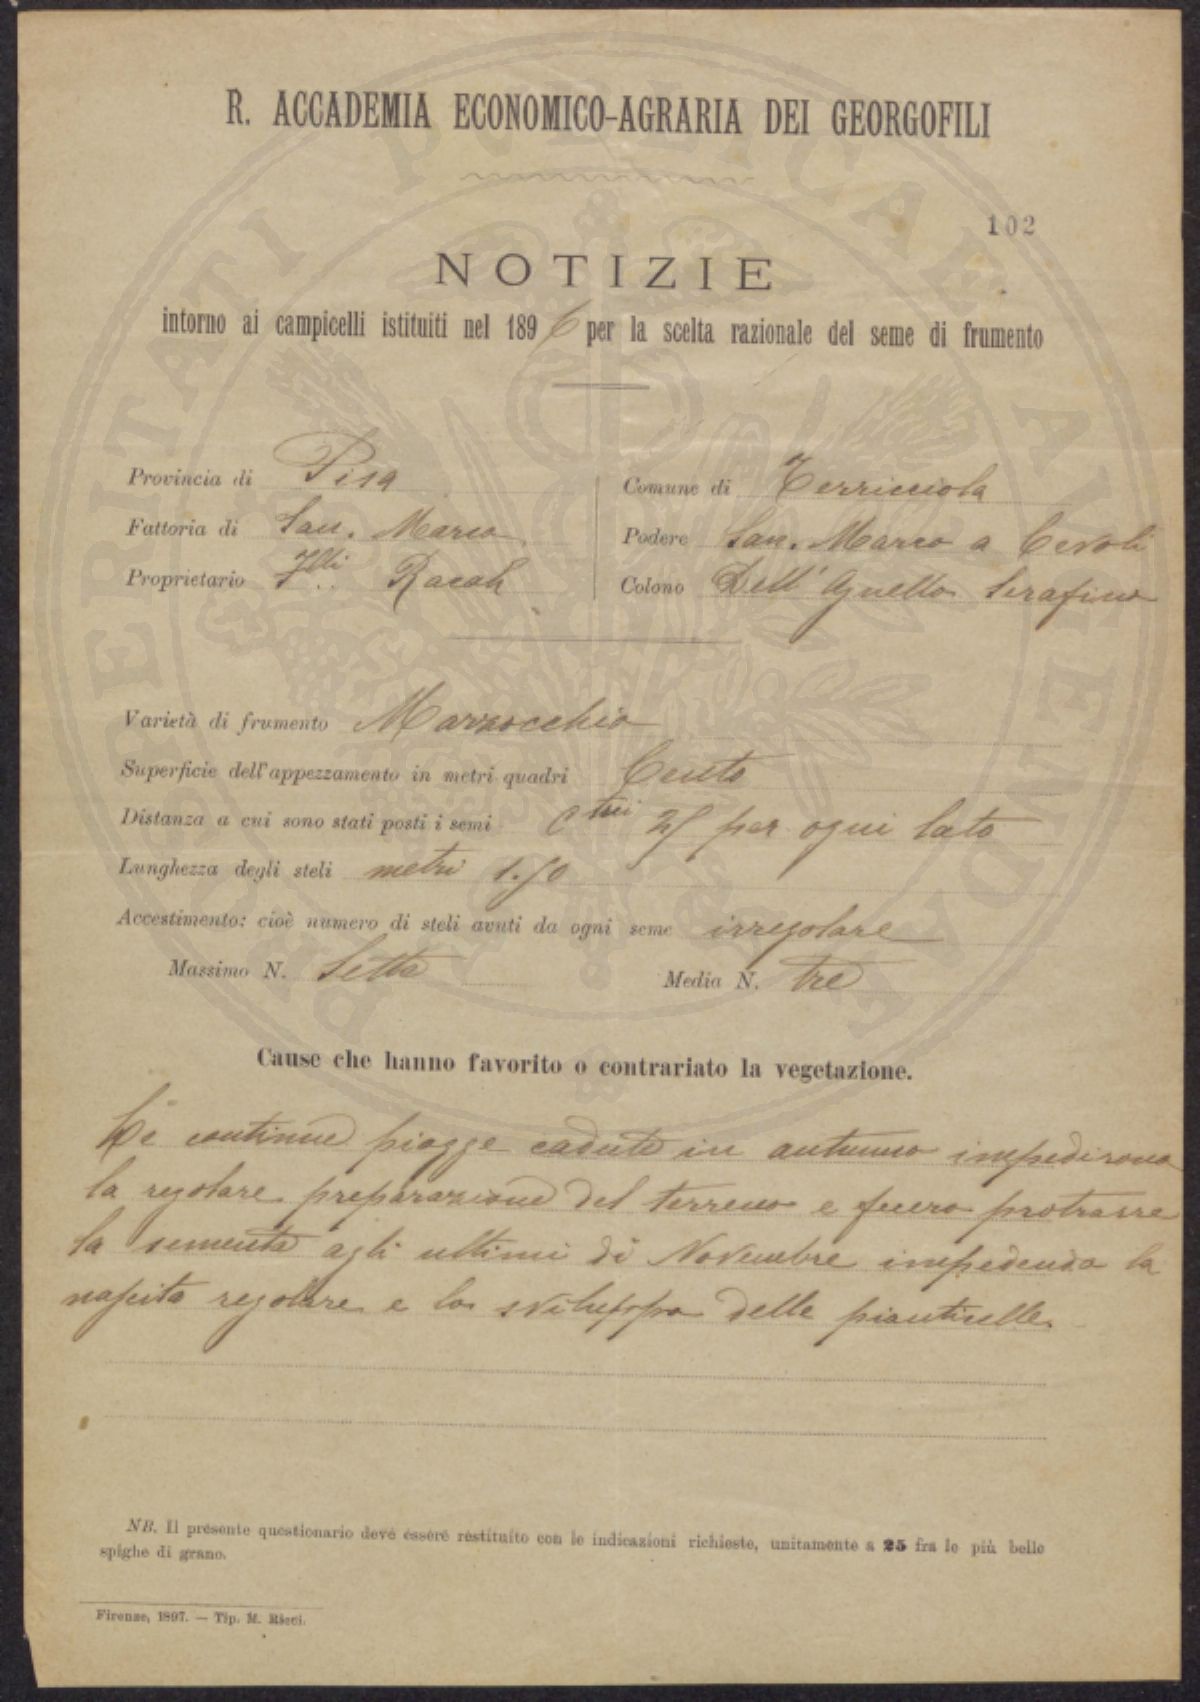 R. ACCADEMIA ECONOMICO-AGRARIA DEI GEORGOFILI
102
NOTIZIE
intorno ai campicelli istituiti nel 1896 per la scelta razionale del seme di frumento
Provincia di Pisa
Comune di Terricciola
Fattoria di San. Marco
Podere San. Marco a Cevoli
Proprietario Flli Racah
Colono Dell' Agnello Serafino
Varietà di frumento Marzocchio
Superficie dell'appezzamento in metri quadri Cento
Distanza a cui sono stati posti i semi Ctri 25 per ogni lato
Lunghezza degli steli metri 1.50
Accestimento: cioè numero di steli avuti da ogni seme irregolare
Massimo N. Sette
Media N. tre
Cause che hanno favorito o contrariato la vegetazione.
Le continue piogge cadute in autunno impedirono
la regolare preparazione del terreno e fecero protrarre
la sementa agli ultimi di Novembre impedendo la
nascita regolare e lo sviluppo delle pianticelle.
NB. Il presente questionario deve essere restituito con le indicazioni richieste, unitamente a 25 fra le più belle
spighe di grano.
Firenze, 1897. — Tip. M. Ricci.
PROSPERITATI PUBLICAE AUGENDAE